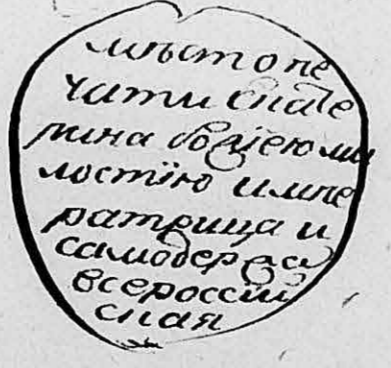 мѣсто пе
чати Екате
рина божіею ми
лостїю импе
ратрица и
самодержи
всероссій
ская